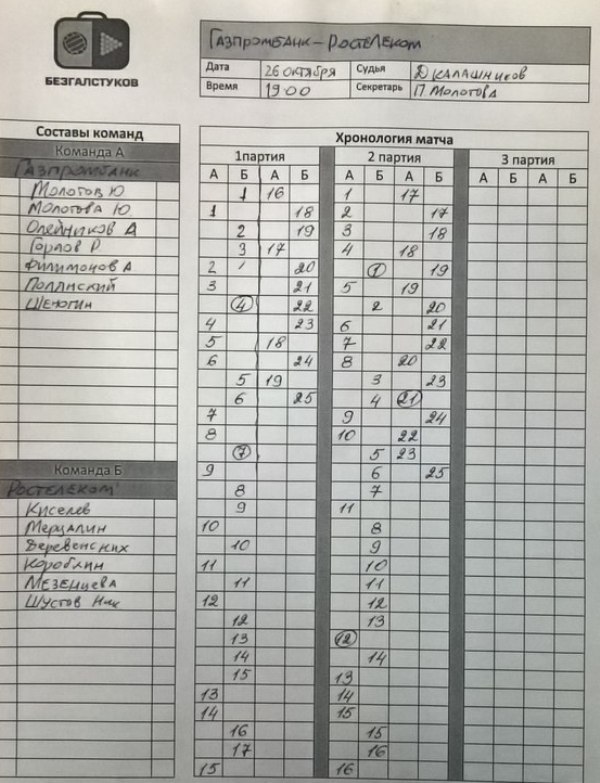 БЕЗГАЛСТУКОВ
ГАЗПРОМБАНК-РОСТЕЛЕКОМ
Дата 26 ОКТЯБРЯ Судья Д КАЛАШНИКОВ
Время 19 00 Секретарь П. МОЛОТОВА
Составы команд
Команда А
ГАЗПРОМБАНК
МОЛОТОВ Ю
МОЛОТОВА Ю.
ОЛЕЙНИКОВ А
ГОРЛОВ Р
ФИЛИМОНОВ А
ПОЛЛИСКИЙ
Команда Б
РОСТЕЛЕКОМ
КИСЕЛЕВ
МЕРЦАЛИН
ДЕРЕВЕНСКИХ
КОРОБКИН
МЕЗЕНЦЕВА
ШУСТОВ НИК
Хронология матча
1партия 2 партия 3 партия
А Б А Б А Б А Б А Б А Б
1 16 1 17
1 18 2 17
2 19 3 18
3 17 4 18
2 20 1 19
3 21 5 19
4 22 2 20
4 23 6 21
5 18 7 22
6 24 8 20
5 19 3 23
6 25 4 21
7 9 24
8 10 22
7 5 23
9 6 25
8 7
9 11
10 8
10 9
11 10
11 11
12 12
12 13
13 12
14 14
15 13
13 14
14 15
16 15
17 16
15 16